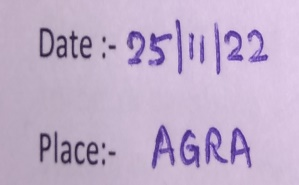 Date :- 25/11/22
Place:- AGRA